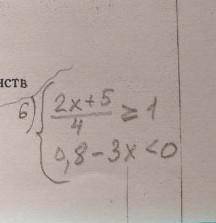 нств
б) { (2x+5)/4 ≥ 1
0,8-3x<0